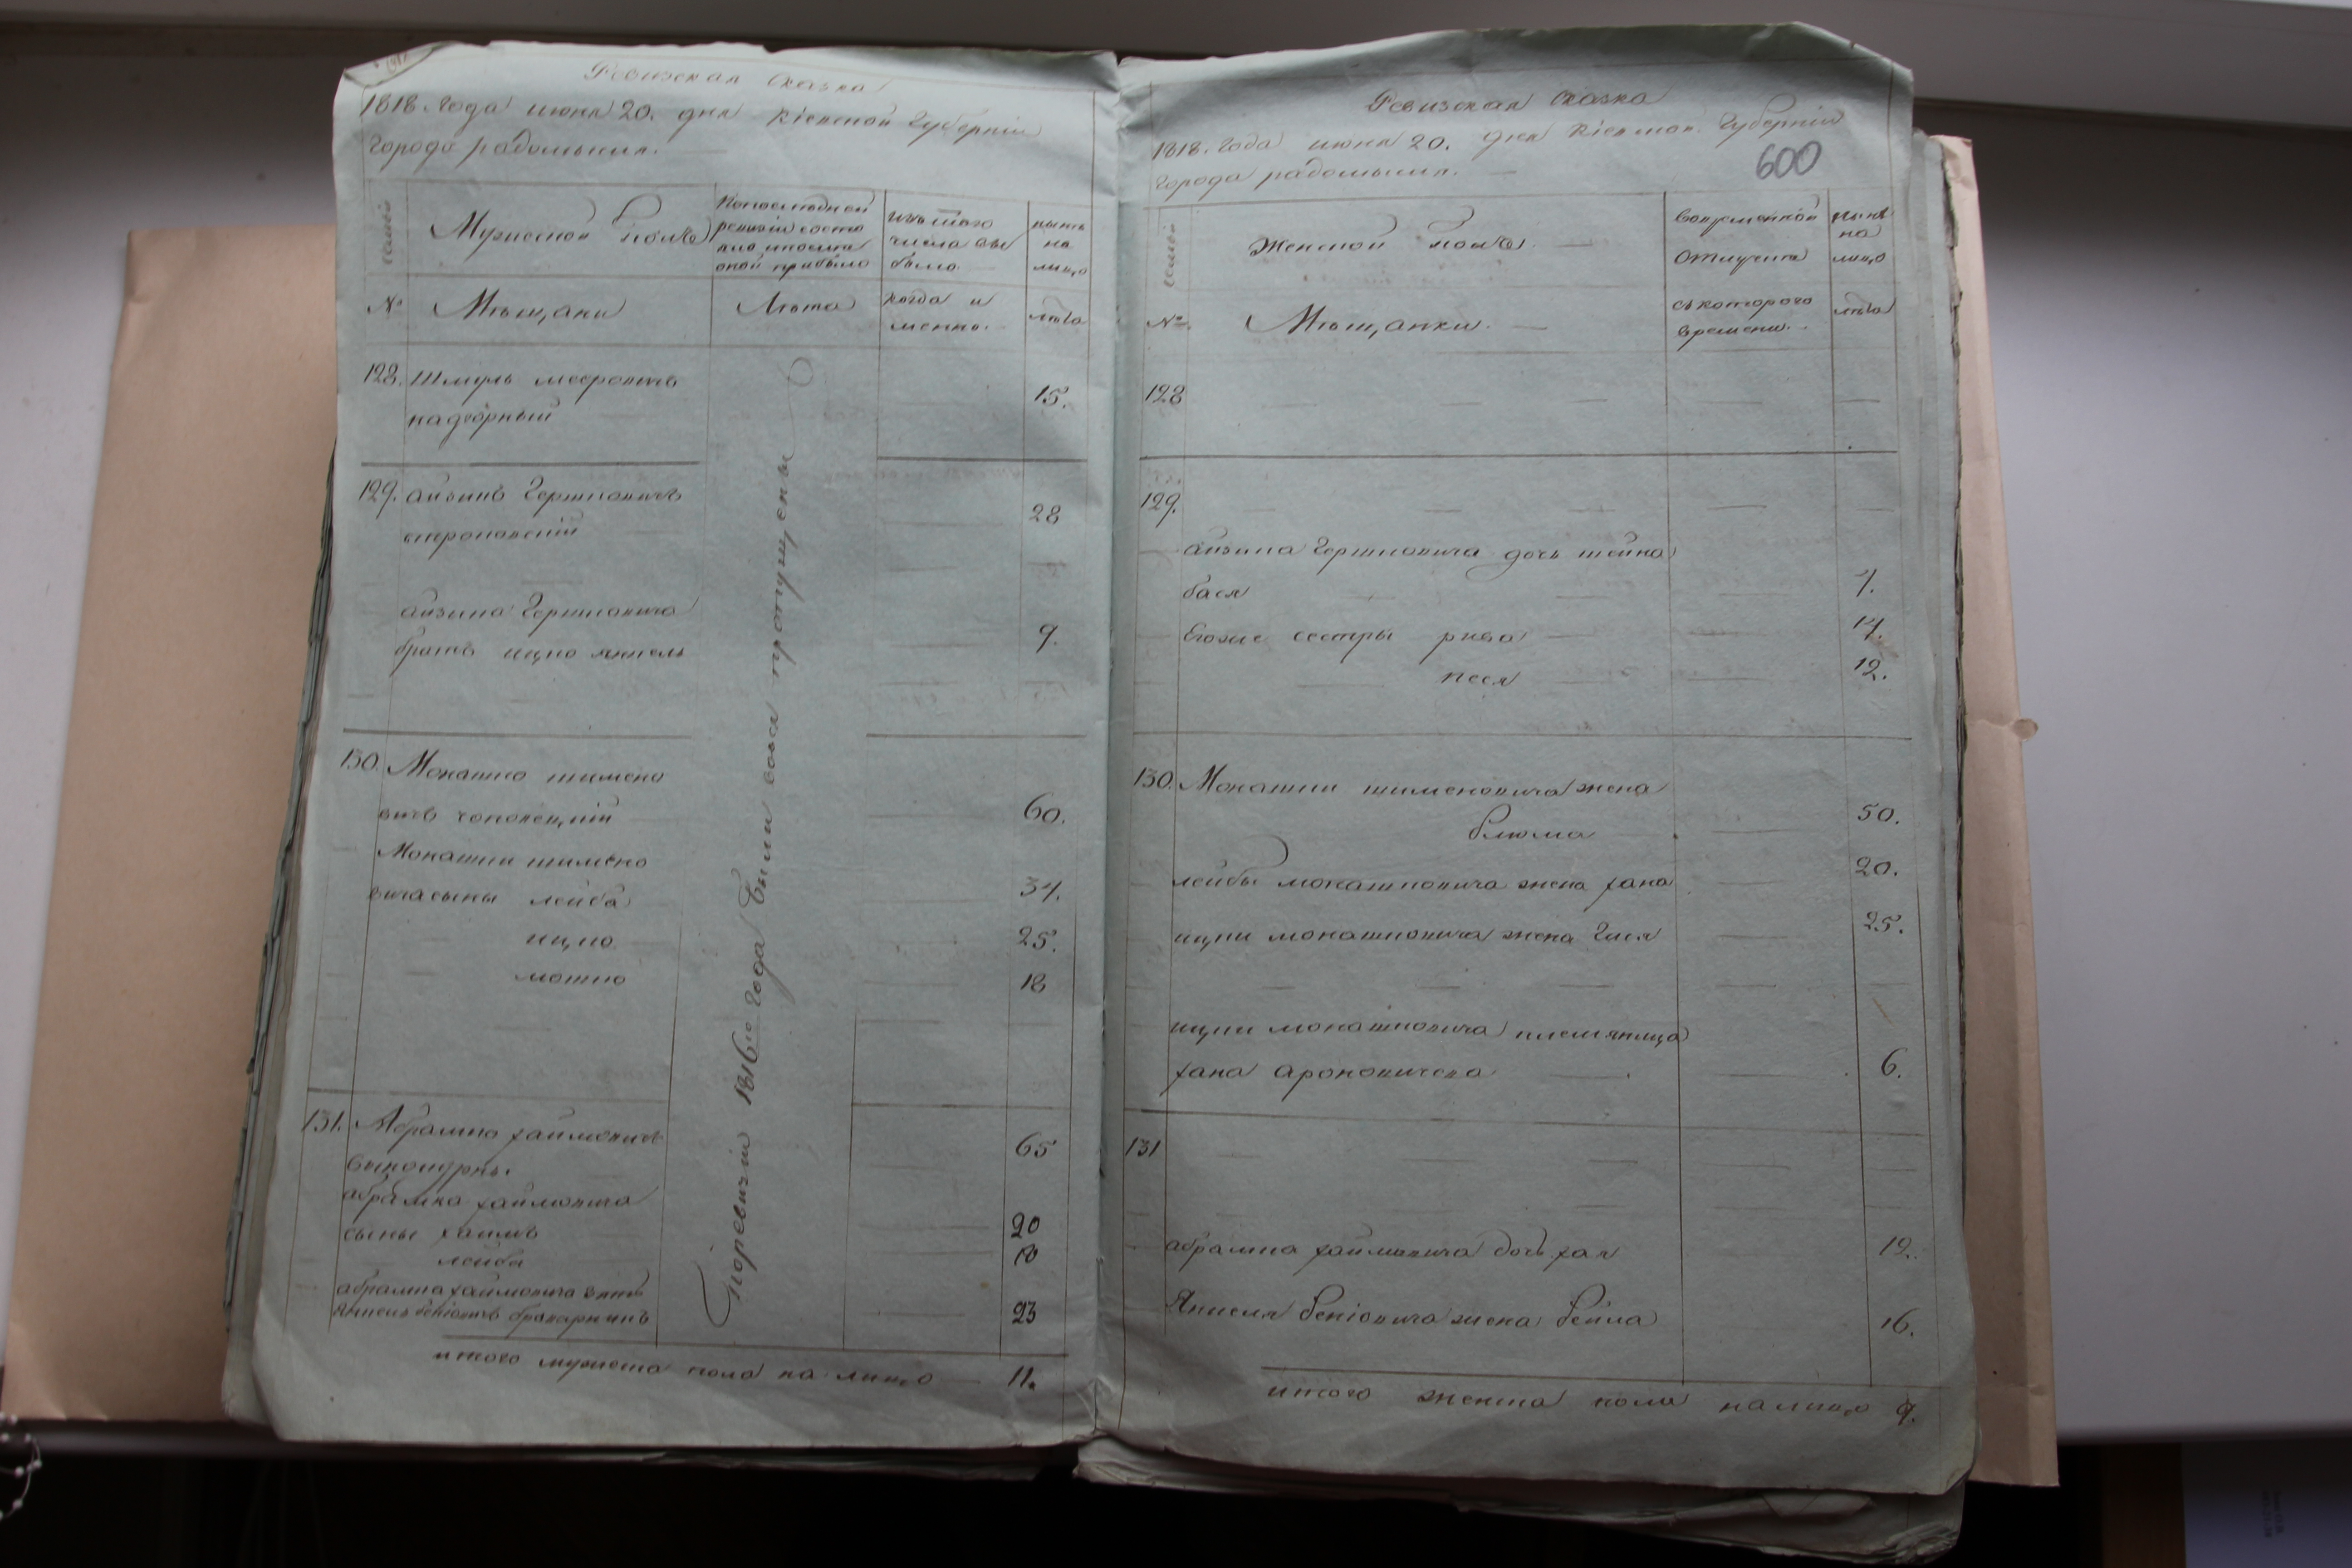 Ревизская Сказка
1818 Года июня 20. дня Кіевской Губерніи
города радомысля.
семей
Мужеской полъ
По последней ревизіи состояло и после оной прибыло
изъ того числа выбыло
ныне на лицо
№
Мѣщане
Лѣта
когда именно.
лѣта
128. Шмуль мееровичь 15.
надворный
129. айзикъ Гершковичь 28
айзика Гершковича
братъ ицко янкель 9.
130. Мокашко шимено
вичь чоповецкій 60.
Мокашки шимено
вича сыны лейба 34.
ицко 25.
мошко 18
131. Абрамко хаймовичь 65
абрамка хаймовича
сыны хаимъ 20
лейба
абрамка хаймовича зять
Янкель беніовичь 23
По ревизіи 1816го года были вовся пропущены
итого мужеска пола на лицо 11.
Ревизская Сказка
1818. Года июня 20. дня Кіевской Губерніи
города радомысля.
600
семей
Женской полъ.
Во временной отлучке
ныне на лицо
№
Мѣщанки.
съ которого времени.
лѣта
128
129.
айзика Гершковича дочь шейна
бася 7.
Егоже сестры рива 14.
песя 12.
130. Мокашки шименовича жена
блюма 50.
лейбы мокашковича жена хана 20.
ицки мокашковича жена Гися 25.
ицки мокашковича племянница
хана ароновичева 6.
131
абрамка хаймовича дочь хая 12.
Янкеля беніовича жена бейла 16.
итого женска пола на лицо 9.